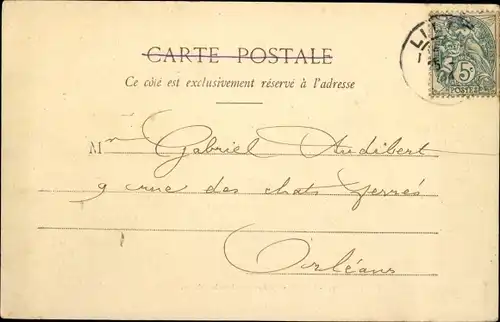 CARTE POSTALE
Ce côté est exclusivement réservé à l'adresse
Mr Gabriel Audibert
9 rue des chats ferrés
Orléans
5c
POSTES